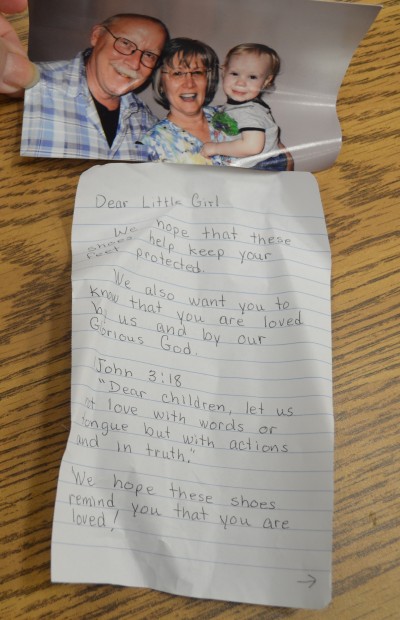 Dear Little Girl
We hope that these
shoes help keep your
feet protected.
We also want you to
know that you are loved
by us and by our
Glorious God.
John 3:18
"Dear children, let us
not love with words or
tongue but with actions
and in truth."
We hope these shoes
remind you that you are
loved!
→